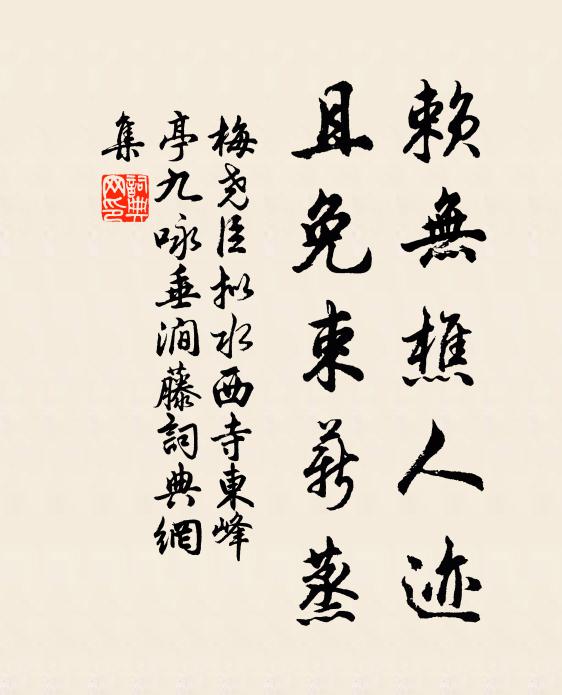 賴無樵人迹
且免束薪蒸
梅尧臣拟水西寺東峰
亭九咏垂澗藤詞典網
集
詞典
网印